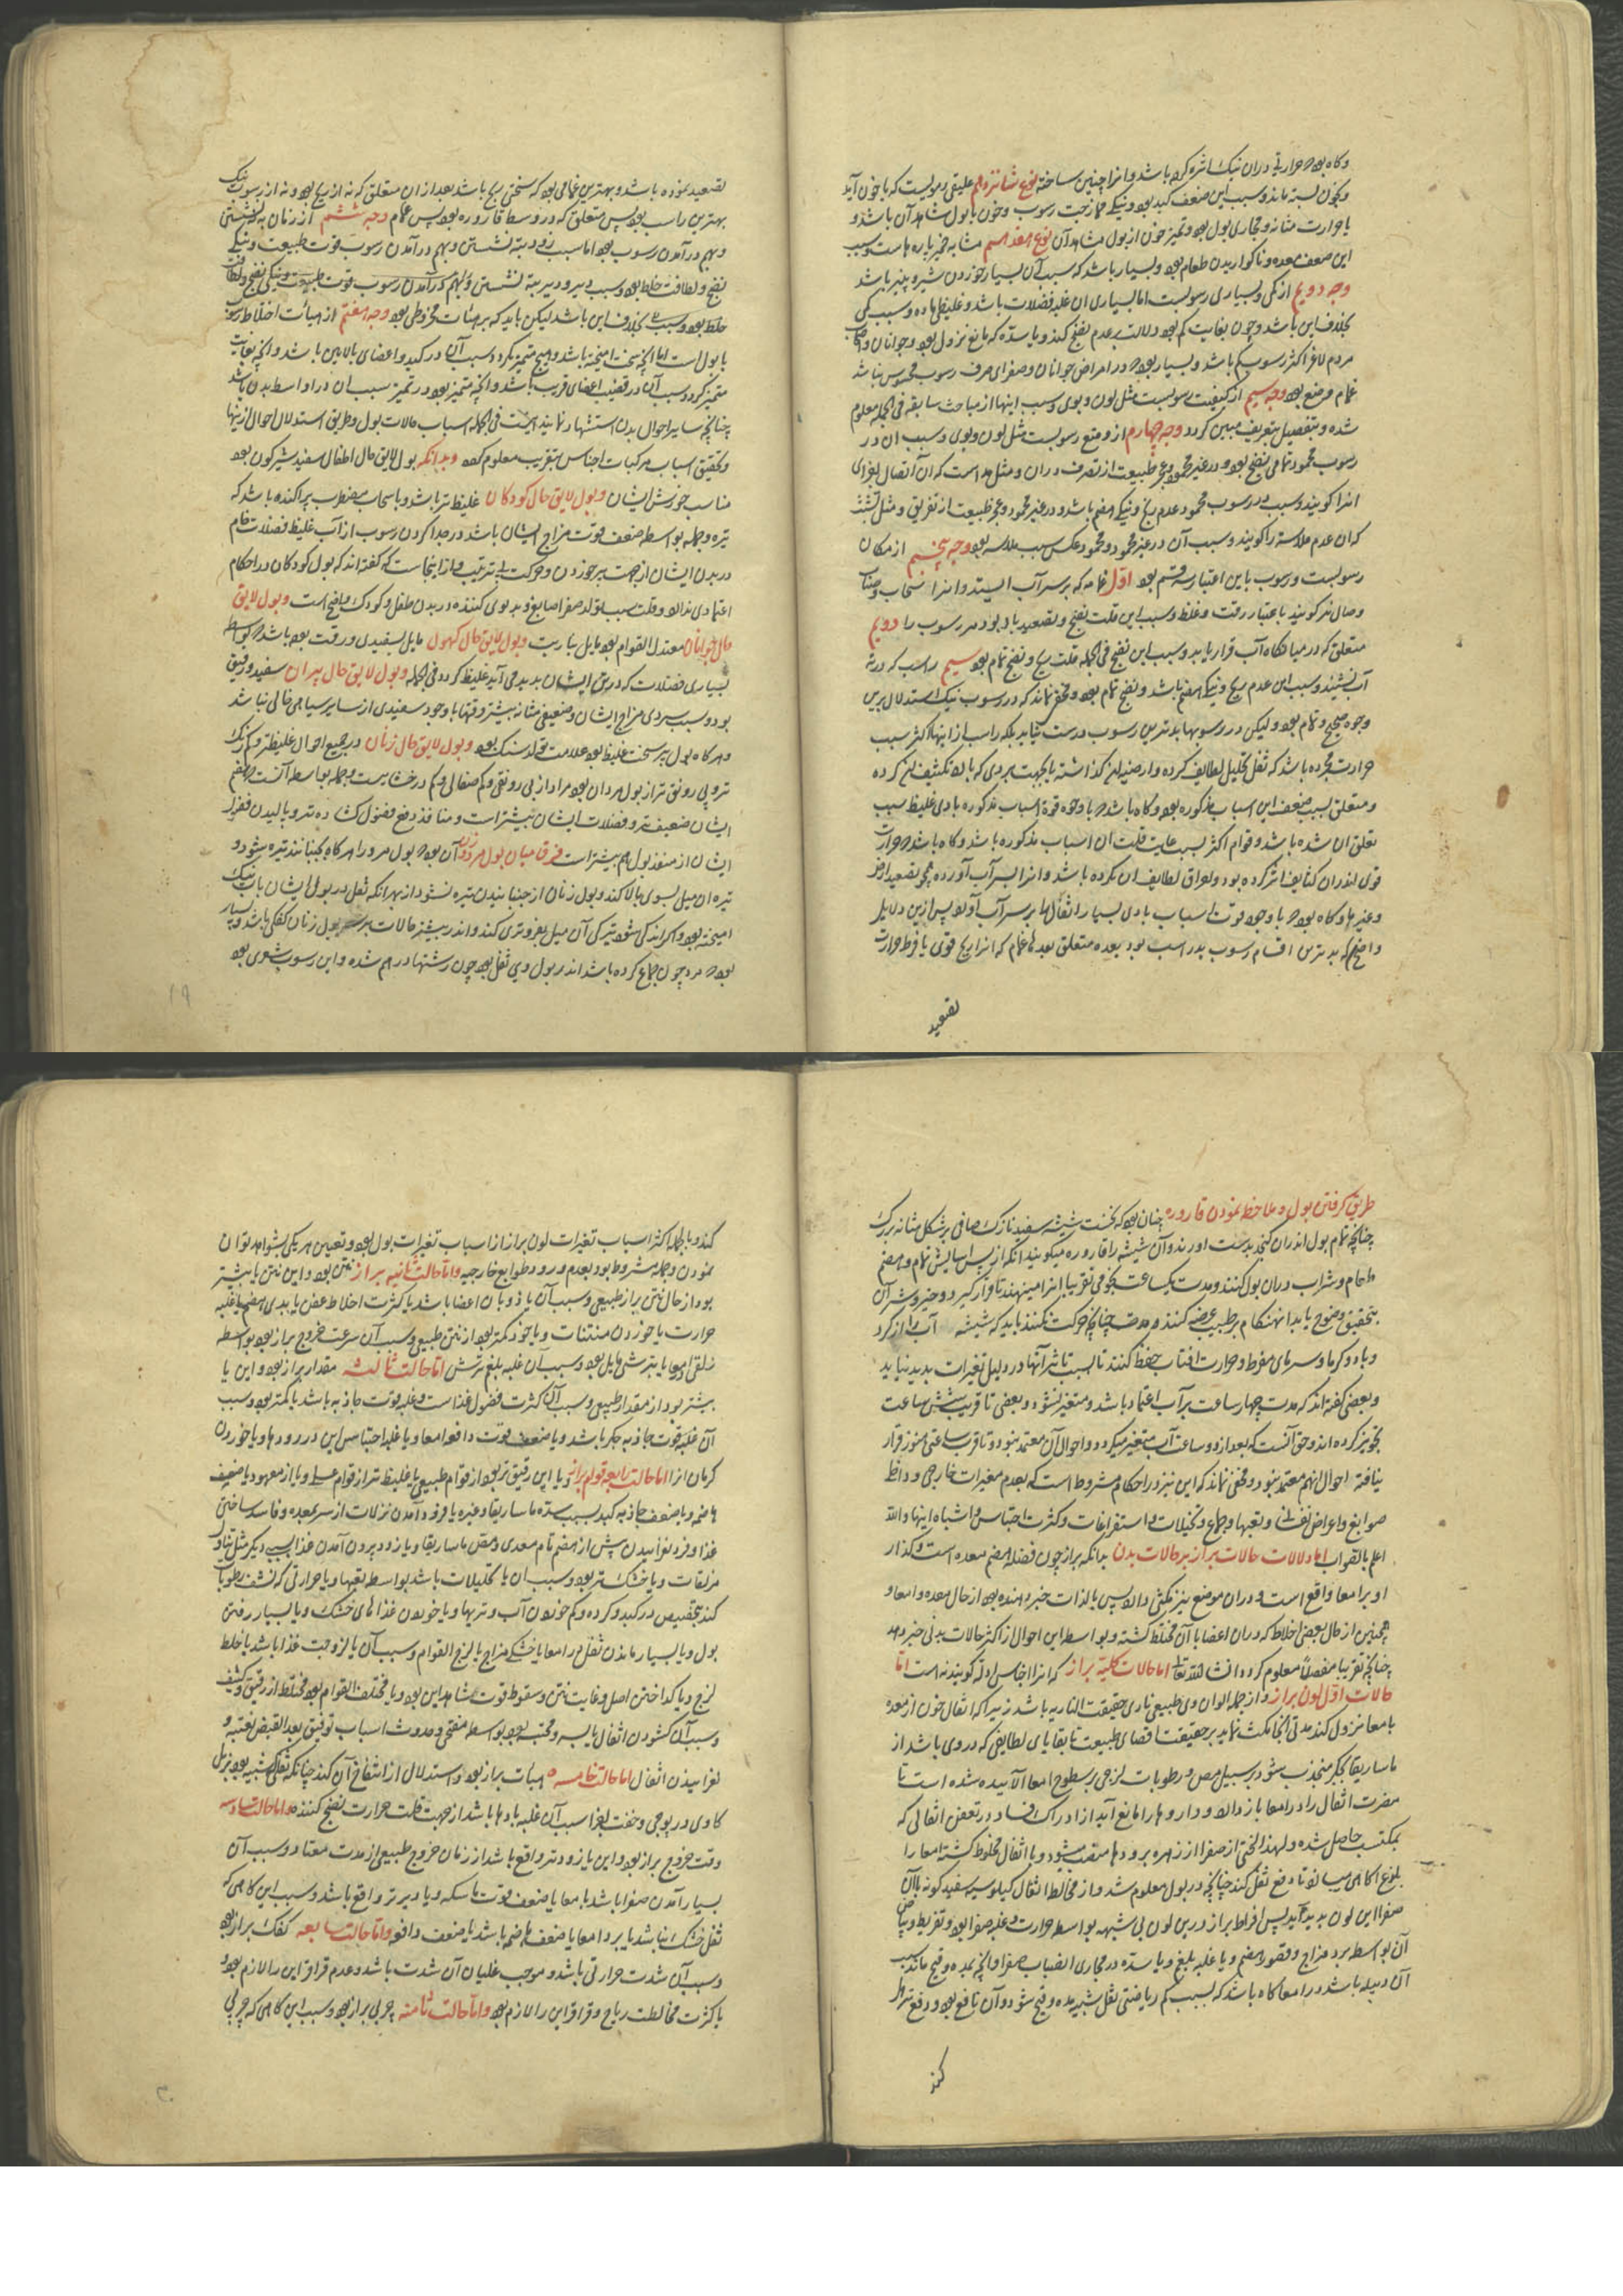 وکاه بود که حرارتی دران نیک اثر کرده باشد و انرا چنین ساخته نوع شانزدهم علیقی رسوبیست که با خون آید
و بخون بسته ماند و سبب این ضعف کبد بود و نیکی ممازجت رسوب و خون با بول شاهد آن باشد و
یا حرارت مثانه و مجاری بول بود و تمیز خون از بول مشاهد آن نوع هفدهم مشابه خمیر پاره هاست و سبب
این ضعف معده و ناکواریدن طعام بود و بسیار باشد که سبب آن بسیار خوردن شیر و پنیر باشد
وجه دویم از کمی و بسیاری رسوبست اما بسیاری ان غلبه فضلات باشد و غلیظی ماده و سبب کمی
بخلاف این باشد و چون بغایت کم بود دلالت بر عدم نضج کند و یا سده که مانع نزول بود و جوانان و
مردم لاغر اکثر رسوب کم باشد و بسیار بود که در امراض جوانان و صفرای صرف رسوب محسوس نباشد
وجه سیم از کیفیت رسوبست مثل لون و بوی و سبب اینها از مباحث سابقه فی الجمله معلوم
شده و بتفصیل بتعریف مبین کردد وجه چهارم از وضع رسوبست مثل لون و بوی و سبب ان در
رسوب محمود تمامی نضج بود و در غیر محمود عجز طبیعت از تصرف دران و مثل ملاست که آن اتصال اجزای
انرا کویند و سبب در رسوب محمود عدم ریح و نیکی هضم باشد و در غیر محمود عجز طبیعت از تفریق و مثل تشتت
که ان عدم ملاسته را کویند و سبب آن در غیر محمود و محمود عکس سبب ملاسه بود وجه پنجم از مکان
رسوبست و رسوب باین اعتبار سه قسم بود اول غمامه که بر سر آب ایستد و انرا سحاب و ضباب
متعلق که در میانکاه آب قرار یابد و سبب این نضج فی الجمله قلت ریح و نضج تمام بود سیم راسب که در ته
آب نشیند و سبب این عدم ریح و نیکی هضم باشد و نضج تمام بود و مخفی نماند که در رسوب نیک استدلال برین
وجوه صحیح و تمام بود ولیکن در رسوبها بد ترین رسوب درست نیاید بلکه راسب از اینها اکثر سبب
و متعلق بسبب ضعف این اسباب مذکوره بود و کاه باشد که با وجود قوة اسباب مذکوره بادی غلیظ سبب
تعلق ان شده باشد و قوام اکثر بسبب غایت قلت ان اسباب مذکوره باشد و کاه باشد که حرارت
قوی اندران کثایف اثر کرده بود و لواق لطایف ان نکرده باشد و انرا بسر آب آورده
وغیرها و کاه بود که با وجود قوت اسباب بادی بسیار اثفال را بر سر آب آورد پس ازین دلایل
واضح که بد ترین اقسام رسوب بد راسب بود بعده متعلق بعد غمام که انرا ریح قوی یا فرط حرارت
تصعید
تصعید نموده باشد و بهترین غمامی بود که سختی ریح باشد بعد از ان متعلق که نه از ریح بود و نه از رسوب نیک
بهترین راسب بود پس متعلق که در وسط قاروره بود پس غمام وجه ششم از زمان به نشستن
و بهم در آمدن رسوب بود اما سبب زود بته نشستن و بهم در آمدن رسوب قوت طبیعت و نیکی
نضج و لطافت خلط بود و سبب دیر و دیر بته نشستن و بهم در آمدن رسوب
خلط بود و سبب بخلاف این باشد لیکن باید که بر هیئات مخروطی بود وجه هفتم از هیأت اختلاط رسوب
با بول است اما انچه سخت امیخته باشد و هیچ متمیز نکردد سبب آن در کبد و اعضای بالایین باشد و انچه بغایت
متمیز کردد سبب آن در قضیب اعضای قریب باشد و انچه متمیز بود در تمیز سبب ان در اواسط بدن باشد
چنانچه سایر احوال بدن استشهاد نمایند اینست فی الجمله اسباب حالات بول و طریق استدلال احوال ازینها
و تحقیق اسباب مرکبات اجناس بتقریب معلوم کردد و بدانکه بول لایق حال اطفال سفید شیر کون بود
مناسب خورش ایشان و بول لایق حال کودکان غلیظ تر باشد و با سحاب مضطرب پراکنده باشد که
تیره و جمله بواسطه ضعف قوت مزاج ایشان باشد در جدا کردن رسوب از آب غلیظ فضلات خام
در بدن ایشان از جهت پر خوردن و حرکت بی ترتیب و از اینجاست که کفته اند که بول کودکان در احکام
اعتمادی نداند و قلت سبب تولد صفرا صابغ و بد بوی کننده در بدن طفل و کودک واضح است و بول لایق
حال جوانان معتدل القوام بود مایل بناریت و بول لایق حال کهول مایل بسفیدی و رقت بود باشد که بواسطه
بسیاری فضلات که در تن ایشان پدید می آید غلیظ کردد فی الجمله و بول لایق حال پیران سفید و رقیق
بود و سبب سردی مزاج ایشان و ضعیفی مثانه بیشتر وقتها با وجود سفیدی از سایر سیاهی خالی نباشد
و هر کاه بول پیر سخت غلیظ بود علامت تولد سنک بود و بول لایق حال زنان در جمیع احوال غلیظتر و کم رنک
تر و بی رونق تر از بول مردان بود مراد از بی رونقی و کم صفائی و کم درخشانیست و جمله بواسطه آنست که هضم
ایشان ضعیف تر و فضلات ایشان بیشتر است و منافذ دفع فضول کشاده تر و پالیدن فضول
ایشان از منفذ بول هم بیشتر است فرق میان بول مرد و زن آن بود که بول مرد را هر کاه بجنبانند تیره شود و
تیره ان میل بسوی بالا کند و بول زنان از جنبانیدن تیره نشود از بهر انکه ثفل در بول ایشان با آب نیک
امیخته بود و اکر اندکی شود تیرکی آن میل بفروتری کند و اندر بیشتر حالات بر سر بول زنان کفکی باشد
بود که مرد چون جماع کرده باشد اندر بول وی ثفل بود چون رشتها در هم شده و این رسوب شعری بود
۱۹
طریق کرفتن بول و ملاحظه نمودن قاروره چنان بود که نخست شیشه سفید نازک صافی بر شکل مثانه بزرک
چنانچه تمام بول اندران کنجد بدست اورند و آن شیشه را قاروره میکویند انکه از پس اسایش تمام و هضم
طعام و شراب دران بول کنند و مدت یکساعت نجومی تقریبا انرا مینهند تا قرار کیرد و خیر و شر آن
بتحقیق وضوح یابد انهنکام بر طبیب عرضه کنند در مدت چنانچه حرکت نکنند باید که شیشه آب را از کرد
و باد و کرما و سرمای مفرط و حرارت افتاب حفظ کنند تا بسبب تاثر آنها در دلیل تغیرات پدید نیاید
و بعضی کفته اند که مدت چهار ساعت بر آب اعتماد باشد و متغیر نشود و بعضی تا قریب شش ساعت
تجویز کرده اند و حق آنست که بعد از دو ساعت آب متغیر میکردد و احوال آن معتمد نبود و تا قرب ساعتی هنوز قرار
نیافته احوال انهم معتمد نبود و مخفی نماند که این نیز در احکام مشروط است که بعدم مغیرات خارجی و داخلی
صوابغ و اعراض نفسانی و تعبها و جماع و تخیلات و استفراغات و کثرت احتباس و اشباه اینها و الله
اعلم بالصواب اما دلالات حالات براز بر حالات بدن بدانکه براز چون فضله هضم معده است و کذار
او بر امعا واقع است و دران موضع نیز مکثی دارد پس بالذات خبر دهنده بود از حال معده و امعا و
همچنین از حال بعضی اخلاط که دران اعضا با آن مختلط کشته و بواسطه این احوال از اکثر حالات بدنی خبر دهد
چنانچه تقریبا مفصلاً معلوم کردد انشا الله تعالی اما حالات کلیه براز که انرا اجناس ادله کویند نه است اما
حالات اول لون براز و از جمله الوان وی طبیعی ناری حقیقت الناریه باشد زیرا که اثفال چون از معده
بامعا نزول کند مدتی انجا مکث نماید بر حقیقت اقتضای طبیعت تا بقایای لطایفی که در وی باشد از
ماساریقا بجکر منجذب شود بر سبیل مص و رطوبات لزجی بر سطوح امعا آلائیده شده است تا
مضرت اثفال را در امعا باز دارد و داروها را مانع آید از ادراک فساد در تعفن اثفالی که
بمکتسب حاصل شده و لهذا لختی از صفرا از زهره برودها منصب میشود و با اثفال مخلوط کشته امعا را
صفرا این لون پدید آید پس افراط براز درین لون بی شبهه بواسطه حرارت و غلبه صفرا بود و تفریط و بیاض
آن بواسطه برد مزاج و قصور هضم و یا غلبه بلغم و یا سده در مجاری انصباب صفرا و انچه بمده و قیح ماند سبب
آن دبیله باشد در امعا کاه باشد که بسبب کم ریاضتی ثفل شبیه بمده و قیح شود و آن نافع بود و دفع ترهل
کند
کند و بالجمله اکثر اسباب تغیرات لون براز از اسباب تغیرات بول بود و تعیین هر یکی بشواهد توان
نمودن و جمله مشروط بود بعدم ورود طوابع خارجیه و اما حالت ثانیه براز نتن بود و این نتن یا بیشتر
بود از حال نتن براز طبیعی و سبب آن یا ذوبان اعضا باشد یا کثرت اخلاط عفن یا بدی هضم یا غلبه
حرارت یا خوردن منتنات و یا خود کمتر بود از نتن طبیعی و سبب آن سرعت خروج براز بود بواسطه
زلقی امعا یا بترشی مایل بود و سبب آن غلبه بلغم ترش اما حالت ثالثه مقدار براز بود و این یا
بیشتر بود از مقدار طبیعی و سبب آن کثرت فضول غذا است و غلبه قوت جاذبه باشد یا کمتر بود و سبب
آن غلبه قوت جاذبه جکر باشد و یا ضعف قوت دافعه امعا و یا غلبه احتباس این در رودها و یا خوردن
کرمان انرا اما حالت رابعه قوام براز و یا این رقیق تر بود از قوام طبیعی یا غلیظ تر از قوام و یا از معهود یا ضعیف
هاضمه و یا ضعف جاذبه کبد بسبب سده ماساریقا و غیره یا فرود آمدن نزلات از سر بمعده و فاسد ساختن
غذا و فرو لغزانیدن پیش از هضم تام معدی و مص ماساریقا و یا زود بیرون آمدن غذا بسببی دیکر مثل تناول
مزلقات و یا خشک تر بود و سبب ان یا تحلیلات باشد بواسطه تعبها و یا حرارتی که نشف رطوبات
کند بتخصیص در کبد و کرده و کم خوردن آب و تریها و یا خوردن غذاهای خشک و یا بسیار رفتن
بول و یا بسیار ماندن ثفل در امعا یا خشکی مزاج یا لزج القوام و سبب آن یا لزوجت غذا باشد یا خلط
لزج و یا کداختن اصل و غایت نتن و سقوط قوت شاهد این بود و یا مختلف القوام بود مختلط از رقیق و کثیف
و سبب آن کشودن اثفال یابسه و محتبسه بود بواسطه منفتحی و حدوث اسباب
لغزانیدن اثفال اما حالت خامسه هیأت براز بود و استدلال از انتفاخ آن کنند چنانکه ثفل شبیه بود بزبل
کاوی در پوچی و خفت اجزا سبب آن غلبه بادها باشد از جهت قلت حرارت نضج کننده و اما حالت سادسه
وقت خروج براز بود و این یا زودتر واقع باشد از زمان خروج طبیعی از مدت معتاد و سبب آن
بسیار آمدن صفرا باشد بامعا یا ضعف قوت ماسکه و یا دیرتر واقع باشد و سبب این کاهی که
ثفل خشک نباشد یا برد امعا یا ضعف هاضمه باشد یا ضعف دافعه و اما حالت سابعه کفک براز بود
و سبب آن شدت حرارتی باشد و موجب غلیان آن شدت باشد و عدم قراقر این را لازم بود و
یا کثرت مخالطت ریاح و قراقر این را لازم بود و اما حالت ثامنه چربی براز بود و سبب این کاهی که چربی
۲۰